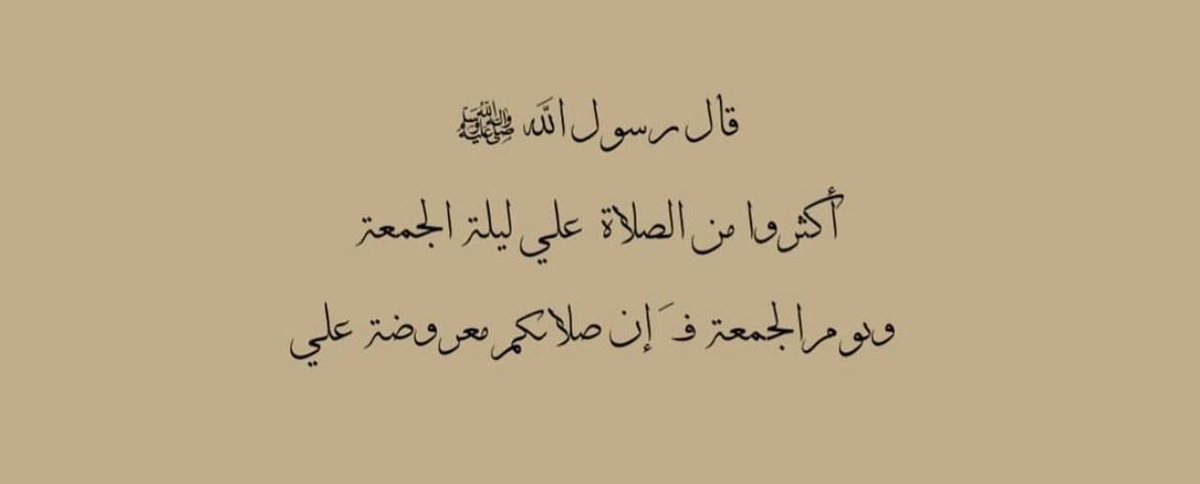 قال رسول الله ﷺ
أكثروا من الصلاة علي ليلة الجمعة
ويوم الجمعة فَ إن صلاتكم معروضة علي